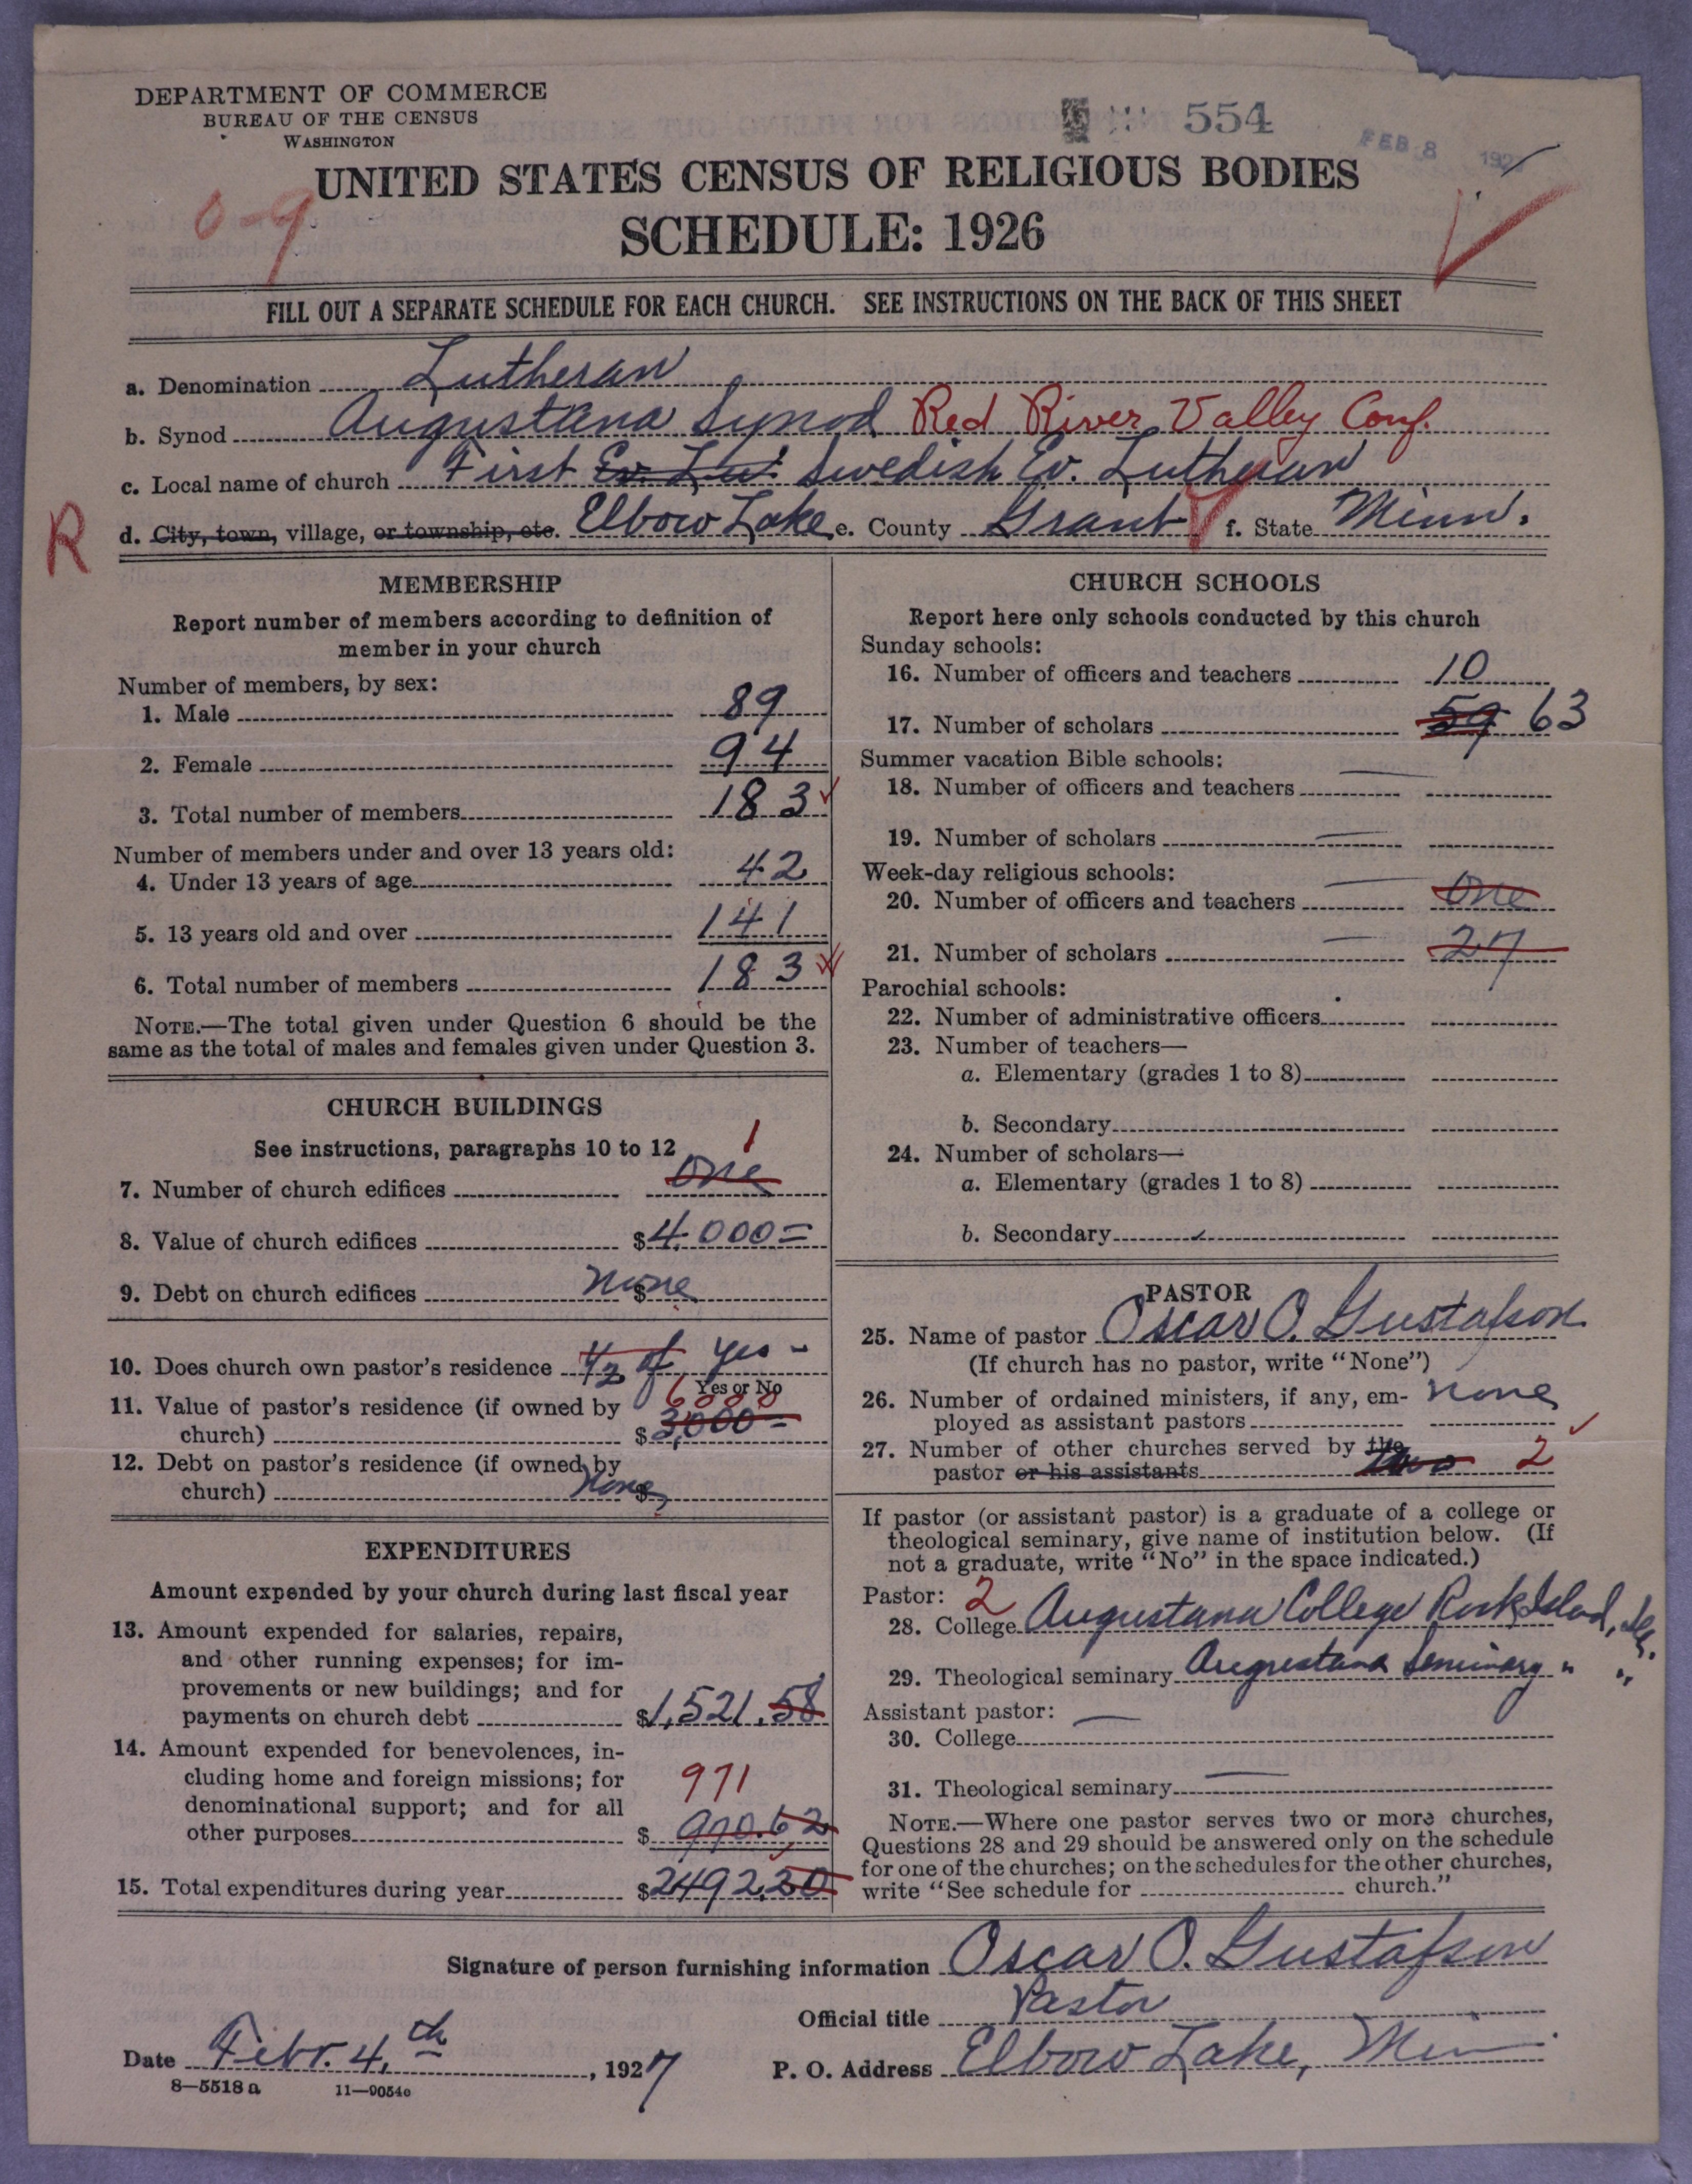 DEPARTMENT OF COMMERCE
BUREAU OF THE CENSUS
WASHINGTON
554
FEB 8 192
UNITED STATES CENSUS OF RELIGIOUS BODIES
0-9
SCHEDULE: 1926
FILL OUT A SEPARATE SCHEDULE FOR EACH CHURCH. SEE INSTRUCTIONS ON THE BACK OF THIS SHEET
a. Denomination Lutheran
b. Synod Augustana Synod Red River Valley Conf.
c. Local name of church First Ev. Lut. Swedish Ev. Lutheran
R
d. City, town, village, or township, etc. Elbow Lake e. County Grant f. State Minn.
MEMBERSHIP
Report number of members according to definition of
member in your church
Number of members, by sex:
1. Male 89
2. Female 94
3. Total number of members 183
Number of members under and over 13 years old:
4. Under 13 years of age 42
5. 13 years old and over 141
6. Total number of members 183
NOTE.—The total given under Question 6 should be the
same as the total of males and females given under Question 3.
CHURCH BUILDINGS
See instructions, paragraphs 10 to 12
1
7. Number of church edifices One
8. Value of church edifices $4,000=
9. Debt on church edifices None $
10. Does church own pastor's residence 1/2 of yes -
Yes or No
6000
11. Value of pastor's residence (if owned by
church) $3,000=
12. Debt on pastor's residence (if owned by
church) None $
EXPENDITURES
Amount expended by your church during last fiscal year
13. Amount expended for salaries, repairs,
and other running expenses; for im-
provements or new buildings; and for
payments on church debt $1,521.58
14. Amount expended for benevolences, in-
cluding home and foreign missions; for
971
denominational support; and for all
other purposes $970.62
15. Total expenditures during year $2492.20
CHURCH SCHOOLS
Report here only schools conducted by this church
Sunday schools:
16. Number of officers and teachers 10
17. Number of scholars 59 63
Summer vacation Bible schools:
18. Number of officers and teachers
19. Number of scholars
Week-day religious schools:
20. Number of officers and teachers One
21. Number of scholars 27
Parochial schools:
22. Number of administrative officers
23. Number of teachers—
a. Elementary (grades 1 to 8)
b. Secondary
24. Number of scholars—
a. Elementary (grades 1 to 8)
b. Secondary
PASTOR
25. Name of pastor Oscar O. Gustafson
(If church has no pastor, write "None")
26. Number of ordained ministers, if any, em- none
ployed as assistant pastors
27. Number of other churches served by the
pastor or his assistants two 2
If pastor (or assistant pastor) is a graduate of a college or
theological seminary, give name of institution below. (If
not a graduate, write "No" in the space indicated.)
Pastor: 2
28. College Augustana College Rock Island, Ill.
29. Theological seminary Augustana Seminary " "
Assistant pastor:
30. College
31. Theological seminary
NOTE.—Where one pastor serves two or more churches,
Questions 28 and 29 should be answered only on the schedule
for one of the churches; on the schedules for the other churches,
write "See schedule for church."
Signature of person furnishing information Oscar O. Gustafson
Official title Pastor
Date Febr. 4.th, 1927 P. O. Address Elbow Lake, Minn
8—5518 a 11—9054e